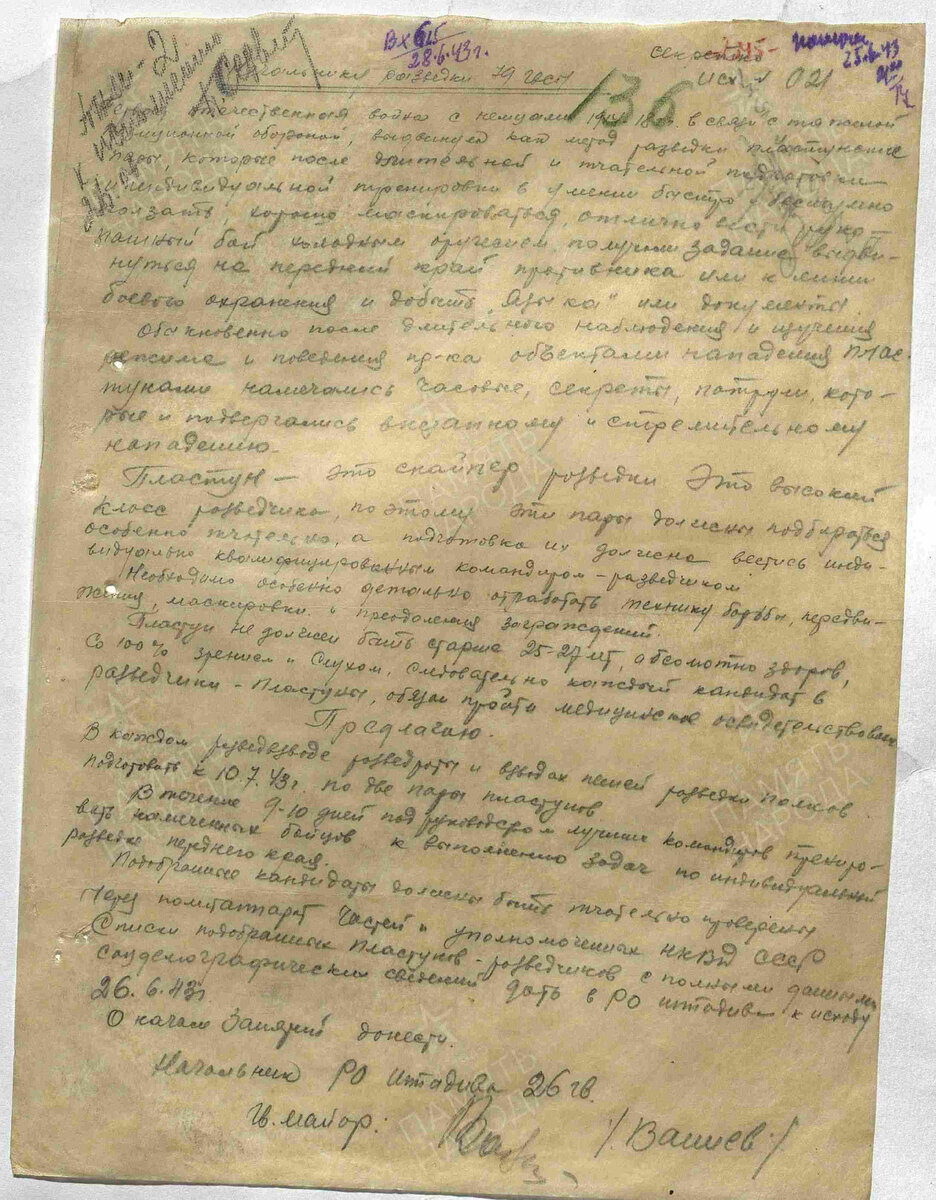 Вх 615
28.6.43г.
секретно
исх 021
25.6.43
Нач-2
к исполнению
Начальника разведки 79 гвсп
136
отечественная война с немцами в связи с тяжелой
обороной, выдвинула как метод разведки пластунские
пары, которые после длительной и тщательной подготовки
индивидуальной тренировки в умении быстро и бесшумно
ползать, хорошо маскироваться, отлично вести руко-
пашный бой холодным оружием, получили задание выдви-
нуться на передний край противника или к линии
боевого охранения и добыть „языка“ или документы
Обыкновенно после длительного наблюдения и изучения
режима и поведения пр-ка объектами нападения плас-
тунами намечались часовые, секреты, патрули, кото-
рые и подвергались внезапному и стремительному
нападению.
Пластун – это снайпер разведки Это высокий
класс разведчика, по этому эти пары должны подбираться
особенно тщательно, а подготовка их должна вестись инди-
видуально квалифицированным командиром-разведчиком
Необходимо особенно детально отработать технику борьбы, передви-
жения, маскировки и преодоления заграждений.
Пластун не должен быть старше 25-27 лет, абсолютно здоров,
со 100% зрением и слухом, следовательно каждый кандидат в
разведчики-пластуны, обязан пройти медицинское освидетельствован
Предлагаю.
В каждом разведвзводе разведроты и взводах пешей разведки полков
подготовить к 10.7.43г. по две пары пластунов
В течение 9-10 дней под руководством лучших командиров трениро-
вать намеченных бойцов к выполнению задач по индивидуальной
разведке переднего края.
Подобранные кандидаты должны быть тщательно проверены
через политаппарат частей и уполномоченных НКВД СССР
Списки подобранных пластунов-разведчиков с полными данными
соцдемографических сведений дать в РО штадива к исходу
26.6.43г
О начале занятий донести.
Начальник РО штадива 26 гв.
Гв. майор: /Вашев/